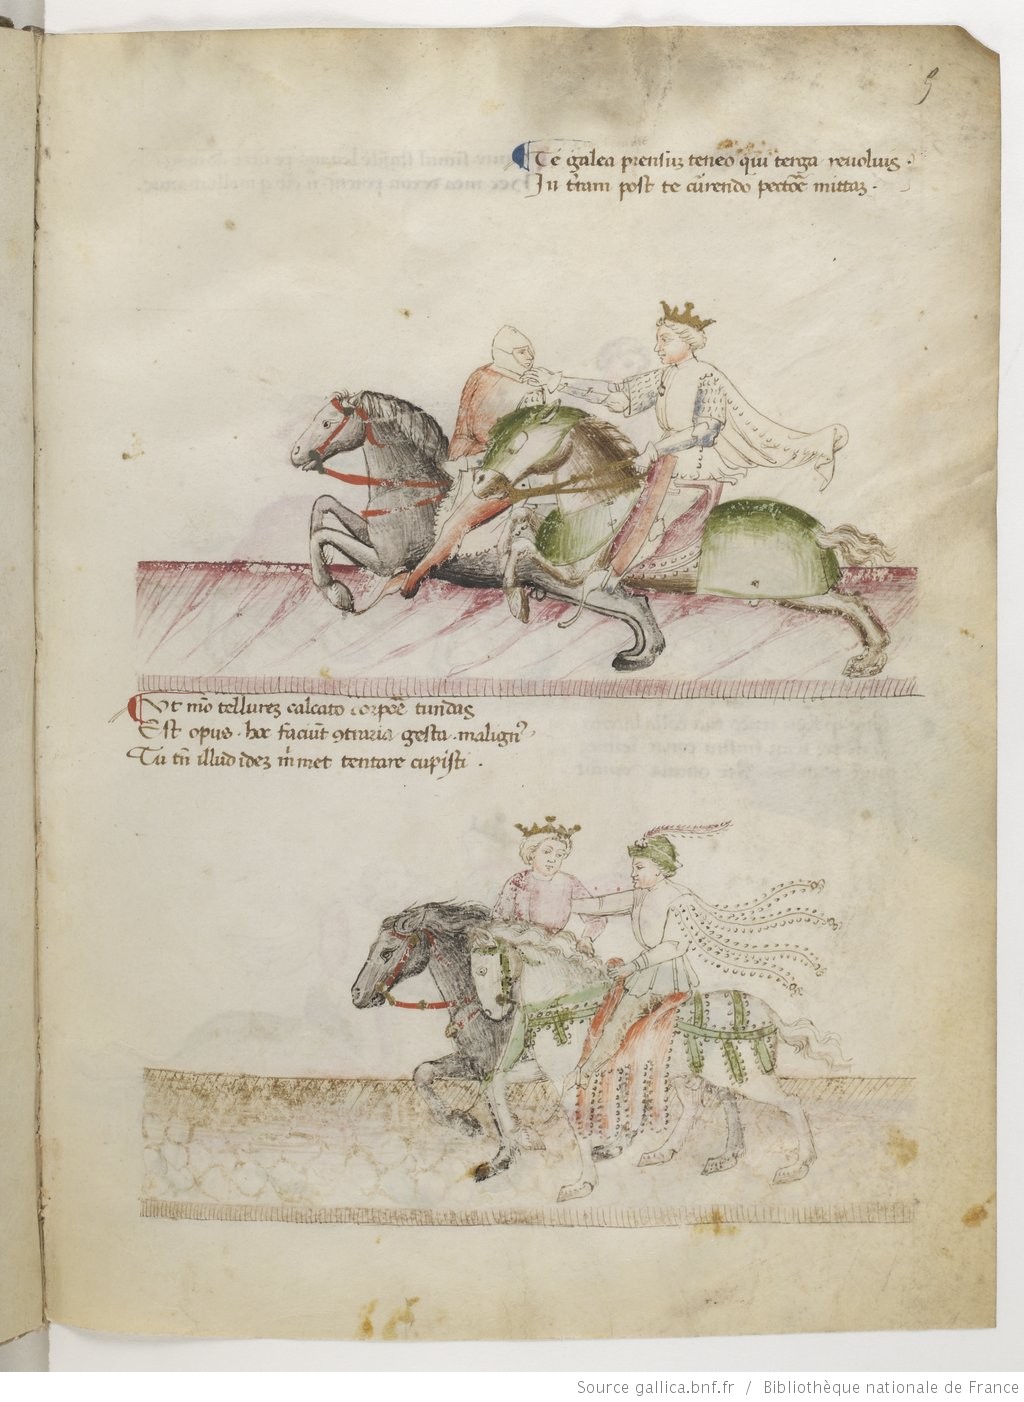 5
Te galea prensuz teneo qui terga revoluis.
In tr̄am post te cur̄endo pectoē mittaz.
Ut mō tellurez calcato corpoē tundas
Est opus. hoc faciūt ꝯtraria gesta. malignꝰ
Tu tn̄ illud idez mͥmet tentare cupisti.
Source gallica.bnf.fr / Bibliothèque nationale de France